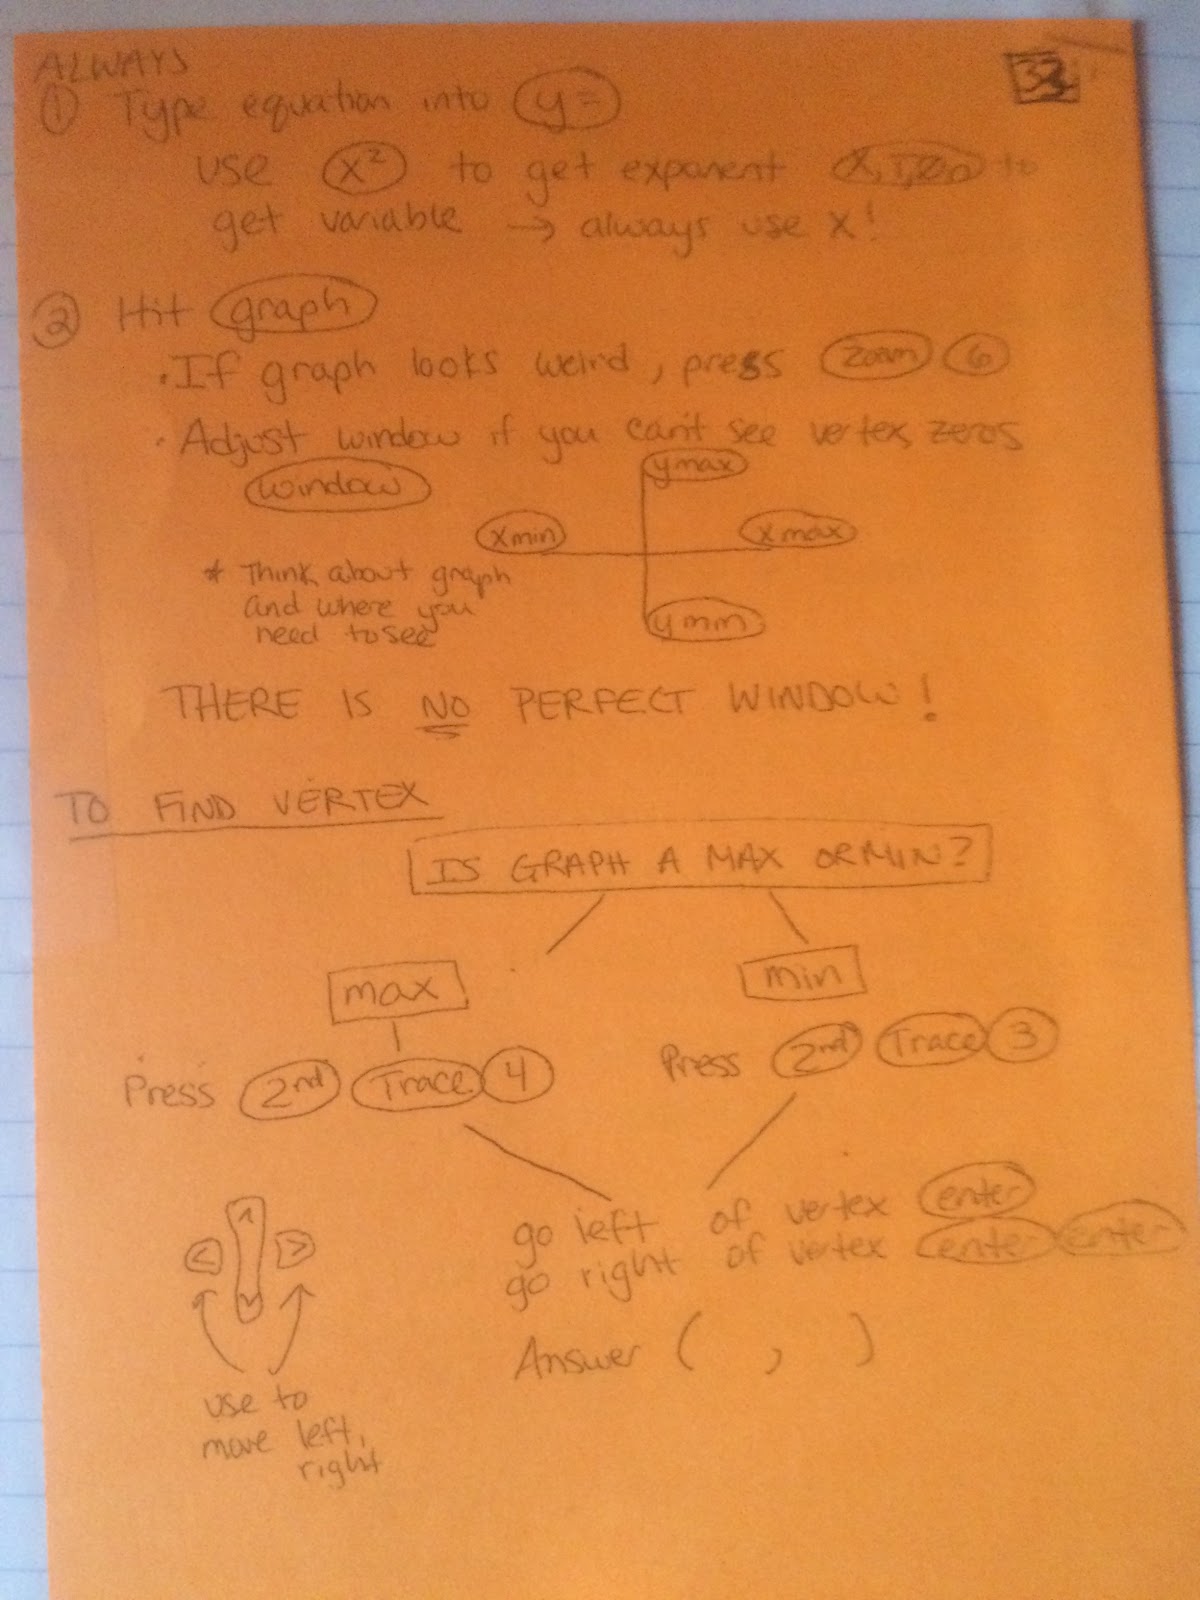 ALWAYS
① Type equation into y=
use x² to get exponent X,T,θ,n to
get variable → always use x!
② Hit graph
· If graph looks weird, press zoom 6
· Adjust window if you can't see vertex, zeros
window
ymax
xmin
xmax
ymin
* Think about graph
and where you
need to see
THERE IS NO PERFECT WINDOW!
TO FIND VERTEX
IS GRAPH A MAX OR MIN?
max
min
Press 2nd Trace 4
Press 2nd Trace 3
go left of vertex enter
go right of vertex enter enter
Answer ( , )
< ^ v >
use to
move left,
right